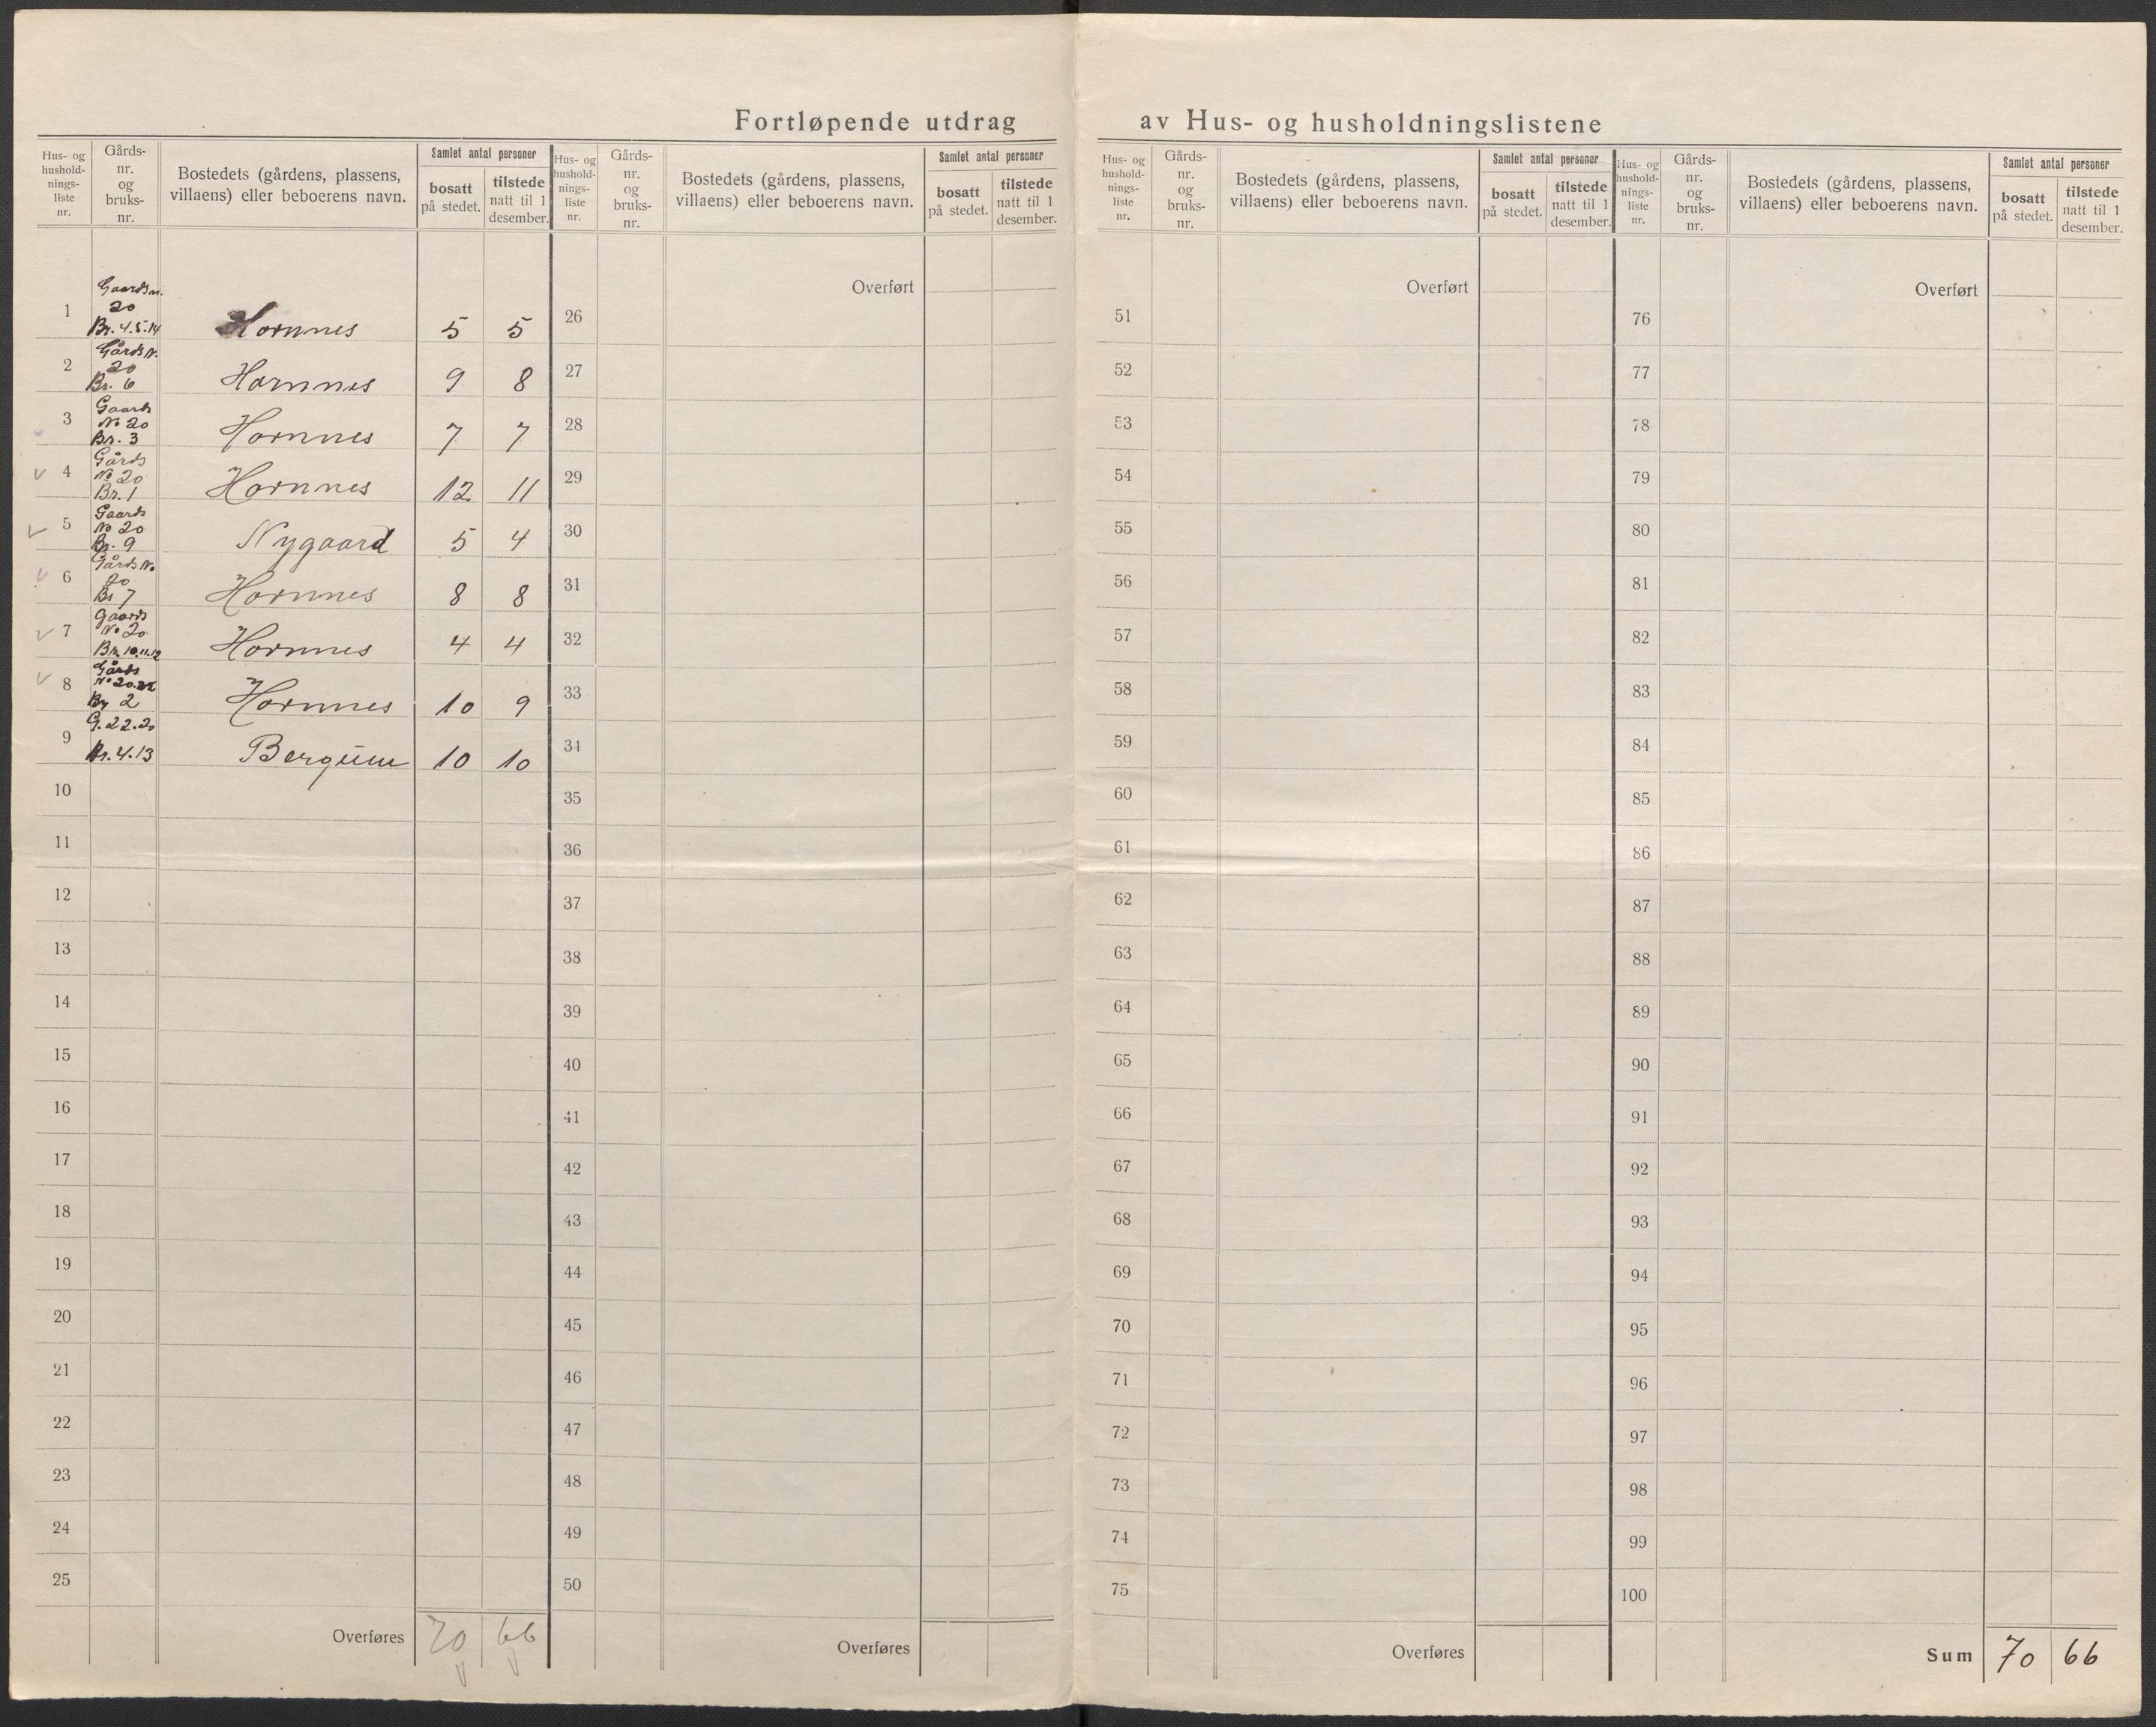 Fortløpende utdrag av Hus- og husholdningslistene
Hus- og hushold-nings-liste nr.
Gårds-nr. og bruks-nr.
Bostedets (gårdens, plassens, villaens) eller beboerens navn.
Samlet antal personer
bosatt på stedet.
tilstede natt til 1 desember.
Hus- og hushold-nings-liste nr.
Gårds-nr. og bruks-nr.
Bostedets (gårdens, plassens, villaens) eller beboerens navn.
Samlet antal personer
bosatt på stedet.
tilstede natt til 1 desember.
Hus- og hushold-nings-liste nr.
Gårds-nr. og bruks-nr.
Bostedets (gårdens, plassens, villaens) eller beboerens navn.
Samlet antal personer
bosatt på stedet.
tilstede natt til 1 desember.
Hus- og hushold-nings-liste nr.
Gårds-nr. og bruks-nr.
Bostedets (gårdens, plassens, villaens) eller beboerens navn.
Samlet antal personer
bosatt på stedet.
tilstede natt til 1 desember.
1 Gaards nr. 20 Br. 4.5.14 Hornnes 5 5
2 Gårds N. 20 Br. 6 Hornnes 9 8
3 Gaards No 20 Br. 3 Hornnes 7 7
4 Gårds No 20 Br. 1 Hornnes 12 11
5 Gaards No 20 Br. 9 Nygaard 5 4
6 Gårds No 20 Br 7 Hornnes 8 8
7 Gaards No 20 Br. 10.11.12 Hornnes 4 4
8 Gårds No 20.22 Br 2 Hornnes 10 9
9 G. 22.20 Br. 4.13 Bergum 10 10
10
11
12
13
14
15
16
17
18
19
20
21
22
23
24
25
Overføres 70 66
Overført
26
27
28
29
30
31
32
33
34
35
36
37
38
39
40
41
42
43
44
45
46
47
48
49
50
Overføres
Overført
51
52
53
54
55
56
57
58
59
60
61
62
63
64
65
66
67
68
69
70
71
72
73
74
75
Overføres
Overført
76
77
78
79
80
81
82
83
84
85
86
87
88
89
90
91
92
93
94
95
96
97
98
99
100
Sum 70 66